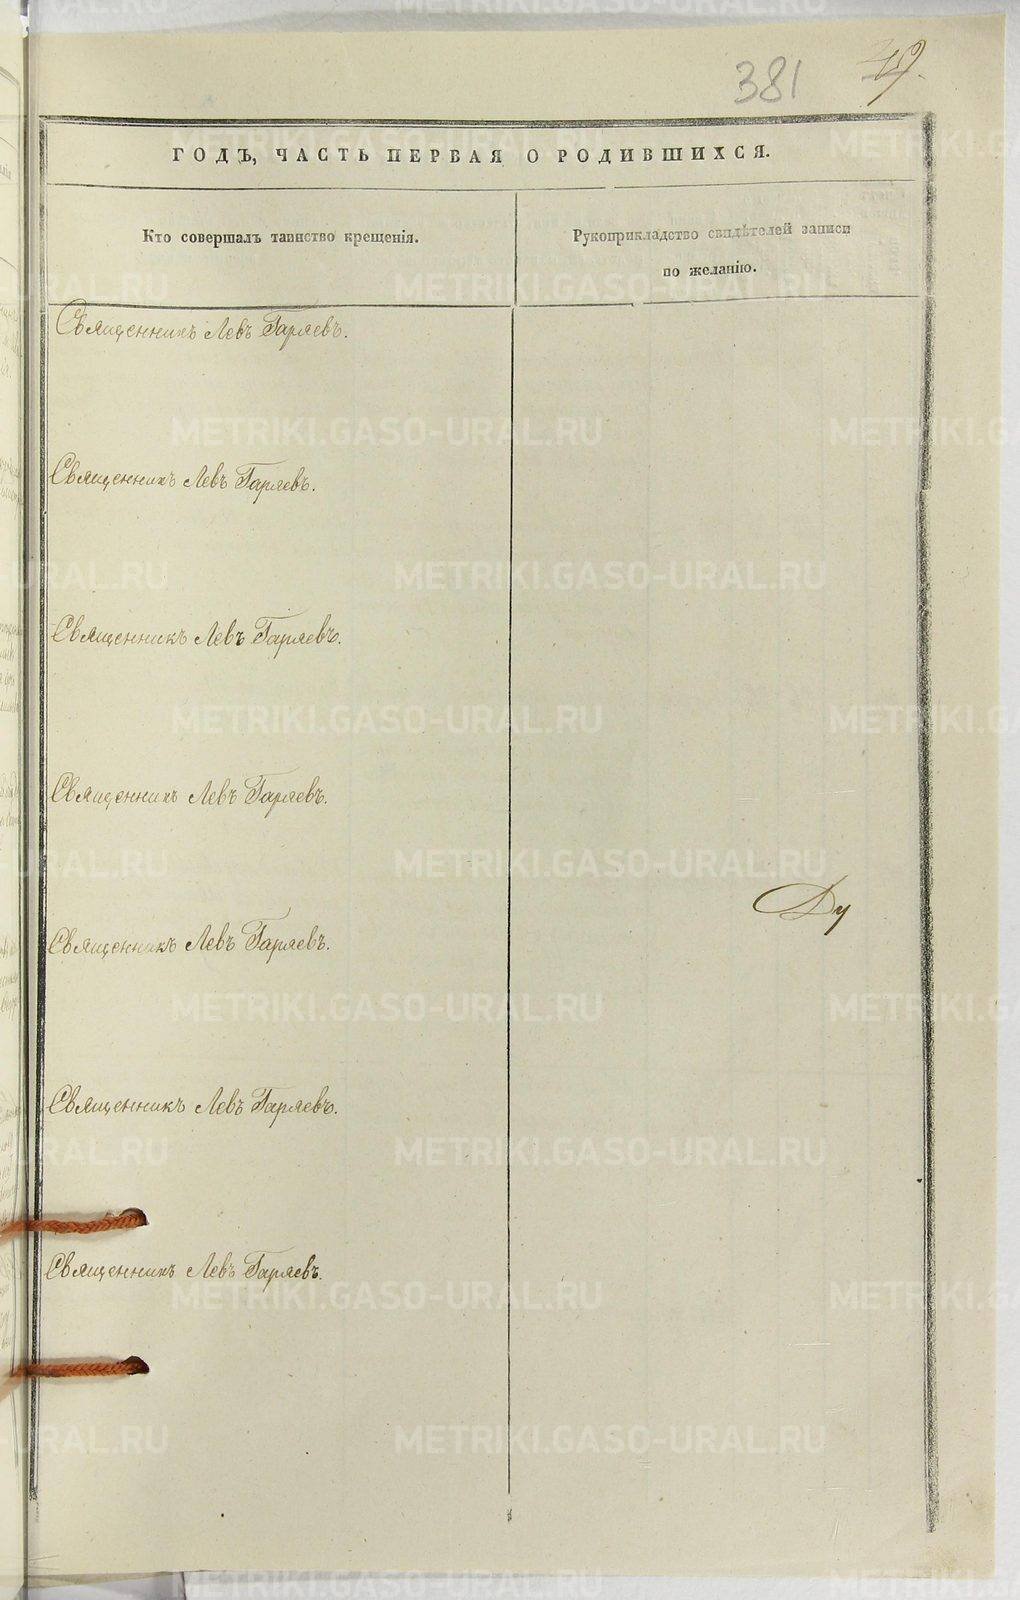 381
ГОДЪ, ЧАСТЬ ПЕРВАЯ О РОДИВШИХСЯ.
Кто совершалъ таинство крещенія.
Рукоприкладство свидѣтелей записи
по желанію.
Священникъ Левъ Гаряевъ.
Священникъ Левъ Гаряевъ.
Священникъ Левъ Гаряевъ.
Священникъ Левъ Гаряевъ.
Ду
Священникъ Левъ Гаряевъ.
Священникъ Левъ Гаряевъ.
Священникъ Левъ Гаряевъ.
METRIKI.GASO-URAL.RU